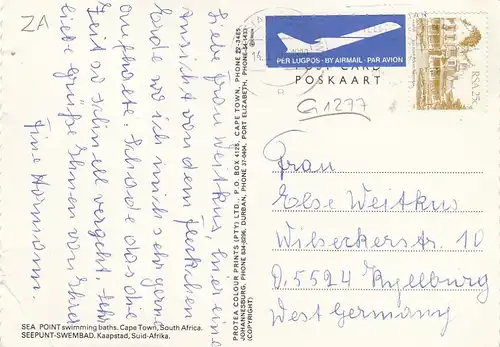 ZA
Liebe Frau Weitkus, hier eine
Ansicht von dem Fleckchen
Erde wo ich mich sehr gerne
aufhalte. Schade dass die
Zeit so schnell vergeht. Sehr
liebe Grüße Ihnen von Ihrer
Tine Hormann.
SEA POINT swimming baths, Cape Town, South Africa.
SEEPUNT-SWEMBAD, Kaapstad, Suid-Afrika.
PROTEA COLOUR PRINTS (PTY) LTD., P.O. BOX 4126, CAPE TOWN, PHONE
JOHANNESBURG, PHONE 834-5296, DURBAN, PHONE 37-0404, PORT ELIZABETH, PHONE
(COPYRIGHT)
PER LUGPOS · BY AIRMAIL · PAR AVION
POSKAART
RSA 25c
G1277
Frau
Else Weitkus
Wilseckerstr. 10
D. 5524 Kyllburg
West Germany